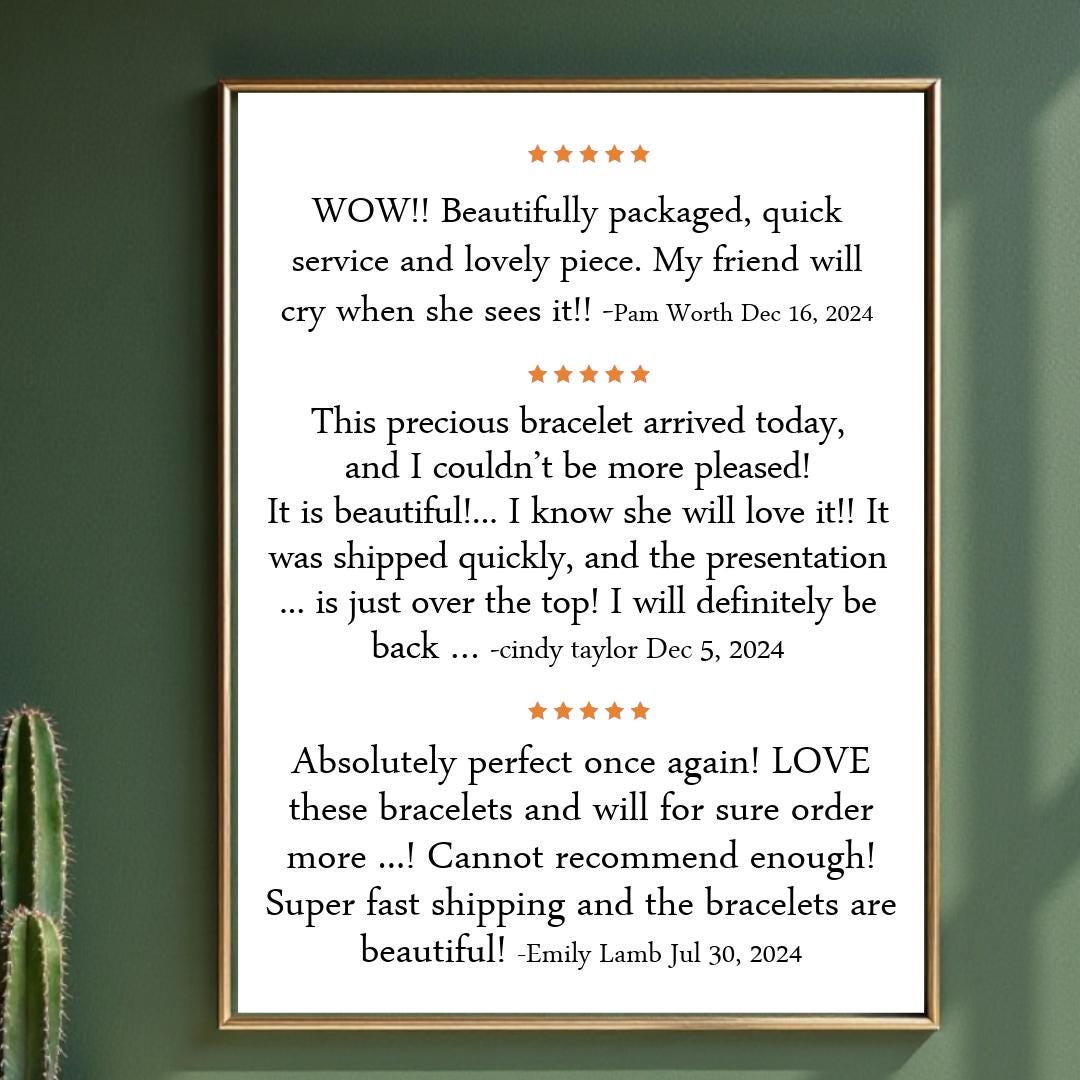 ★★★★★
WOW!! Beautifully packaged, quick
service and lovely piece. My friend will
cry when she sees it!! -Pam Worth Dec 16, 2024
★★★★★
This precious bracelet arrived today,
and I couldn’t be more pleased!
It is beautiful!... I know she will love it!! It
was shipped quickly, and the presentation
... is just over the top! I will definitely be
back ... -cindy taylor Dec 5, 2024
★★★★★
Absolutely perfect once again! LOVE
these bracelets and will for sure order
more ...! Cannot recommend enough!
Super fast shipping and the bracelets are
beautiful! -Emily Lamb Jul 30, 2024